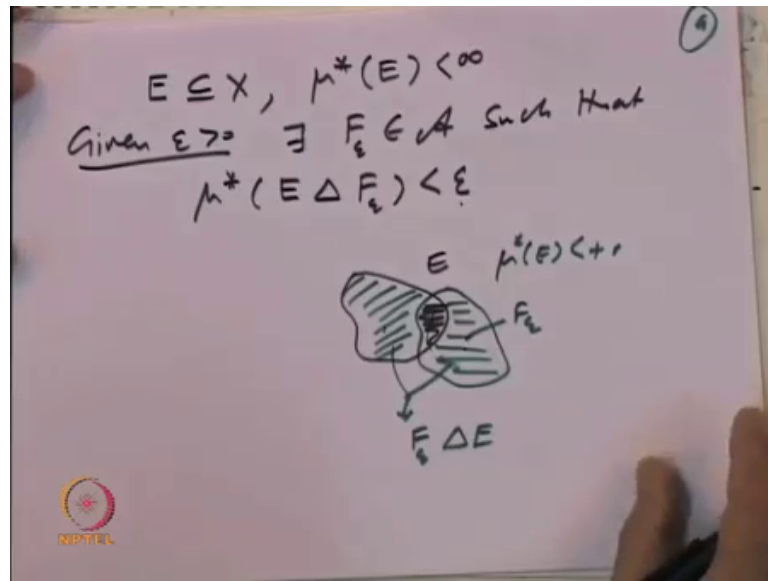 9
E ⊆ X, μ*(E) < ∞
Given ε > 0 ∃ F_ε ∈ 𝒜 such that
μ*(E Δ F_ε) < ε
E μ*(E) < +
F_ε
F_ε Δ E
NPTEL